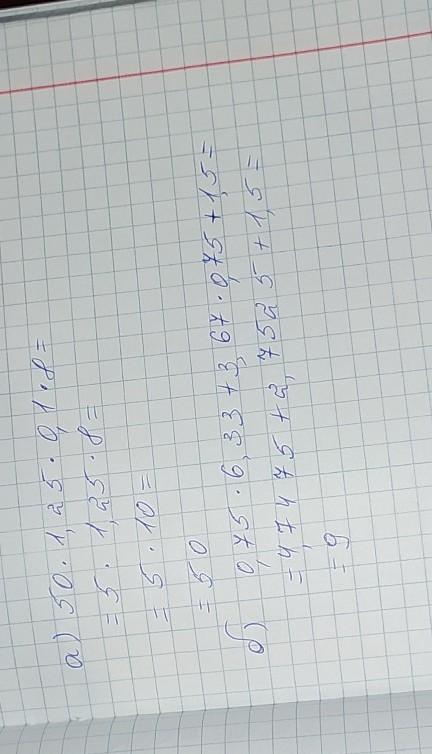 а) 50 · 1,25 · 0,1 · 8 =
= 5 · 1,25 · 8 =
= 5 · 10 =
= 50
б) 0,75 · 6,33 + 3,67 · 0,75 + 1,5 =
= 4,7475 + 2,7525 + 1,5 =
= 9